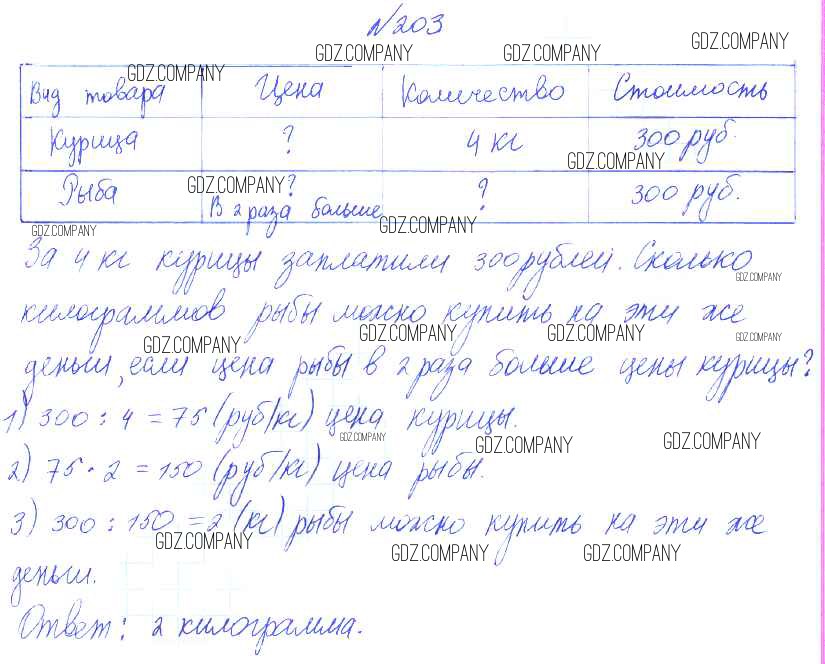 №203
GDZ.COMPANY GDZ.COMPANY GDZ.COMPANY
GDZ.COMPANY
Вид товара Цена Количество Стоимость
Курица ? 4 кг 300 руб.
GDZ.COMPANY
Рыба GDZ.COMPANY ? ? 300 руб.
В 2 раза больше
GDZ.COMPANY GDZ.COMPANY
За 4 кг курицы заплатили 300 рублей. Сколько
GDZ.COMPANY
килограммов рыбы можно купить на эти же
GDZ.COMPANY GDZ.COMPANY GDZ.COMPANY GDZ.COMPANY
деньги, если цена рыбы в 2 раза больше цены курицы?
1) 300 : 4 = 75 (руб/кг) цена курицы.
GDZ.COMPANY GDZ.COMPANY GDZ.COMPANY
2) 75 · 2 = 150 (руб/кг) цена рыбы.
3) 300 : 150 = 2 (кг) рыбы можно купить на эти же
GDZ.COMPANY GDZ.COMPANY GDZ.COMPANY
деньги.
Ответ: 2 килограмма.